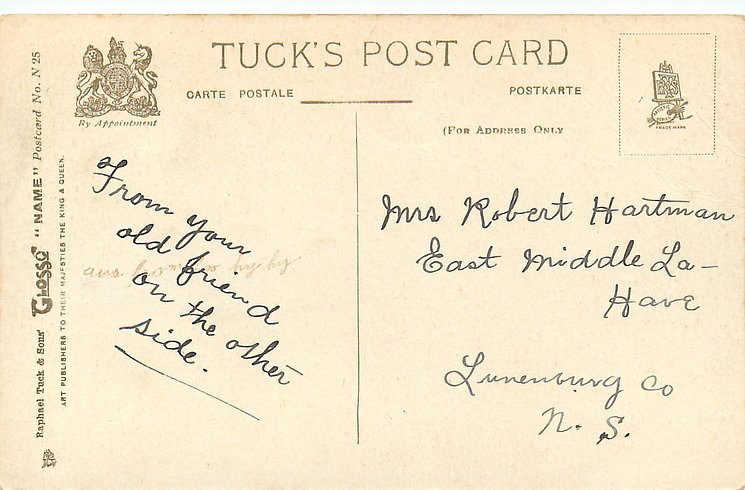 TUCK'S POST CARD
CARTE POSTALE
POSTKARTE
By Appointment
(FOR ADDRESS ONLY
TRADE MARK
Raphael Tuck & Sons' "GLOSSO" "NAME" Postcard No. N 25
ART PUBLISHERS TO THEIR MAJESTIES THE KING & QUEEN.
From your
old friend
on the other
side.
Mrs Robert Hartman
East Middle La-
Have
Lunenburg Co
N. S.